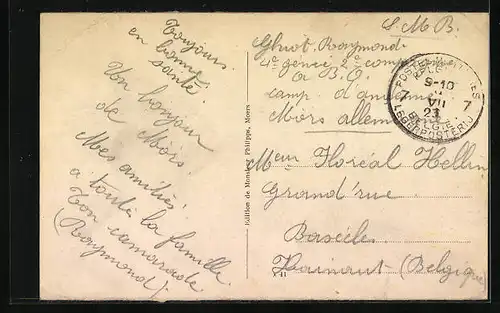 Toujours
en bonne
santé
Un bonjour
de Mörs!
Mes amitiés
a toute la famille
Ton camarade
(Raymond)
Edition de Monsieur Philippe, Moers
S. M. B.
Ghiot Raymond
4ie génie 2ie comp
a B. O.
camp d'
Mörs allem
Mieur Floréal Hellin
Grand'rue
Basècles
Hainaut (Belgique)
POSTES MILITAIRES
BELGIQUE
9-10
7 VII 7
23
BELGIE
LEGERPOSTERIJ